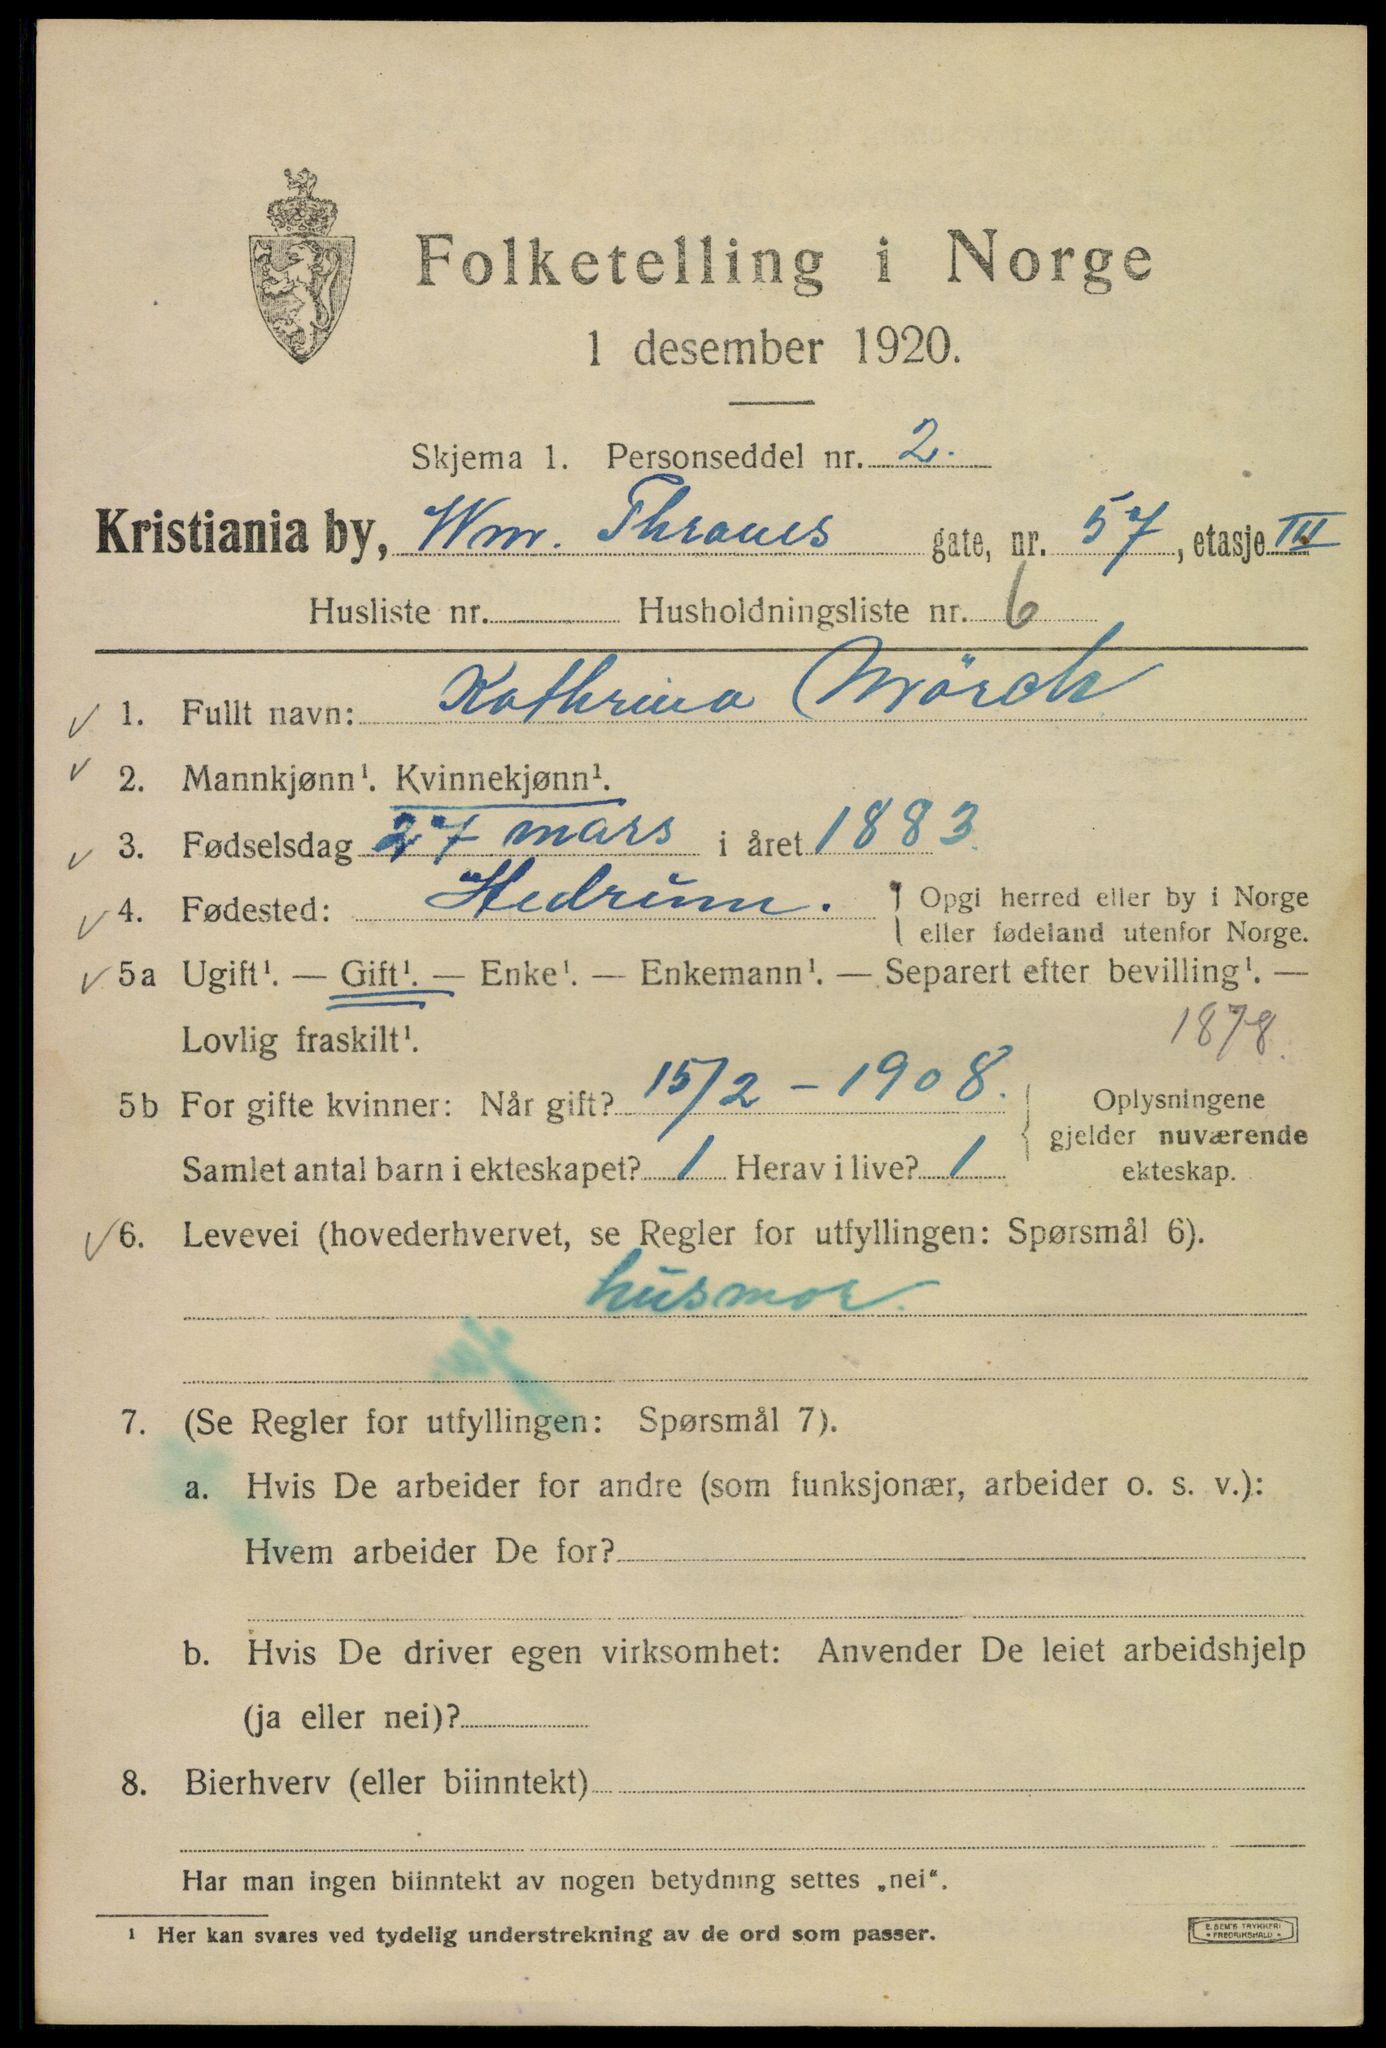 Folketelling i Norge
1 desember 1920.
Skjema 1. Personseddel nr. 2.
Kristiania by, Wm. Thranes gate, nr. 57, etasje III
Husliste nr. Husholdningsliste nr. 6
1. Fullt navn: Kathrina Mörch
2. Mannkjønn¹. Kvinnekjønn¹.
3. Fødselsdag 27 mars i året 1883.
4. Fødested: Hedrum. Opgi herred eller by i Norge
eller fødeland utenfor Norge.
5a Ugift¹. — Gift¹. — Enke¹. — Enkemann¹. — Separert efter bevilling¹. —
Lovlig fraskilt¹. 1878.
5b For gifte kvinner: Når gift? 15/2 – 1908. Oplysningene
gjelder nuværende
Samlet antal barn i ekteskapet? 1 Herav i live? 1 ekteskap.
6. Levevei (hovederhvervet, se Regler for utfyllingen: Spørsmål 6).
husmor.
7. (Se Regler for utfyllingen: Spørsmål 7).
a. Hvis De arbeider for andre (som funksjonær, arbeider o. s. v.):
Hvem arbeider De for?
b. Hvis De driver egen virksomhet: Anvender De leiet arbeidshjelp
(ja eller nei)?
8. Bierhverv (eller biinntekt)
Har man ingen biinntekt av nogen betydning settes „nei“.
¹ Her kan svares ved tydelig understrekning av de ord som passer.
E. SEM'S TRYKKERI
• FREDRIKSHALD •